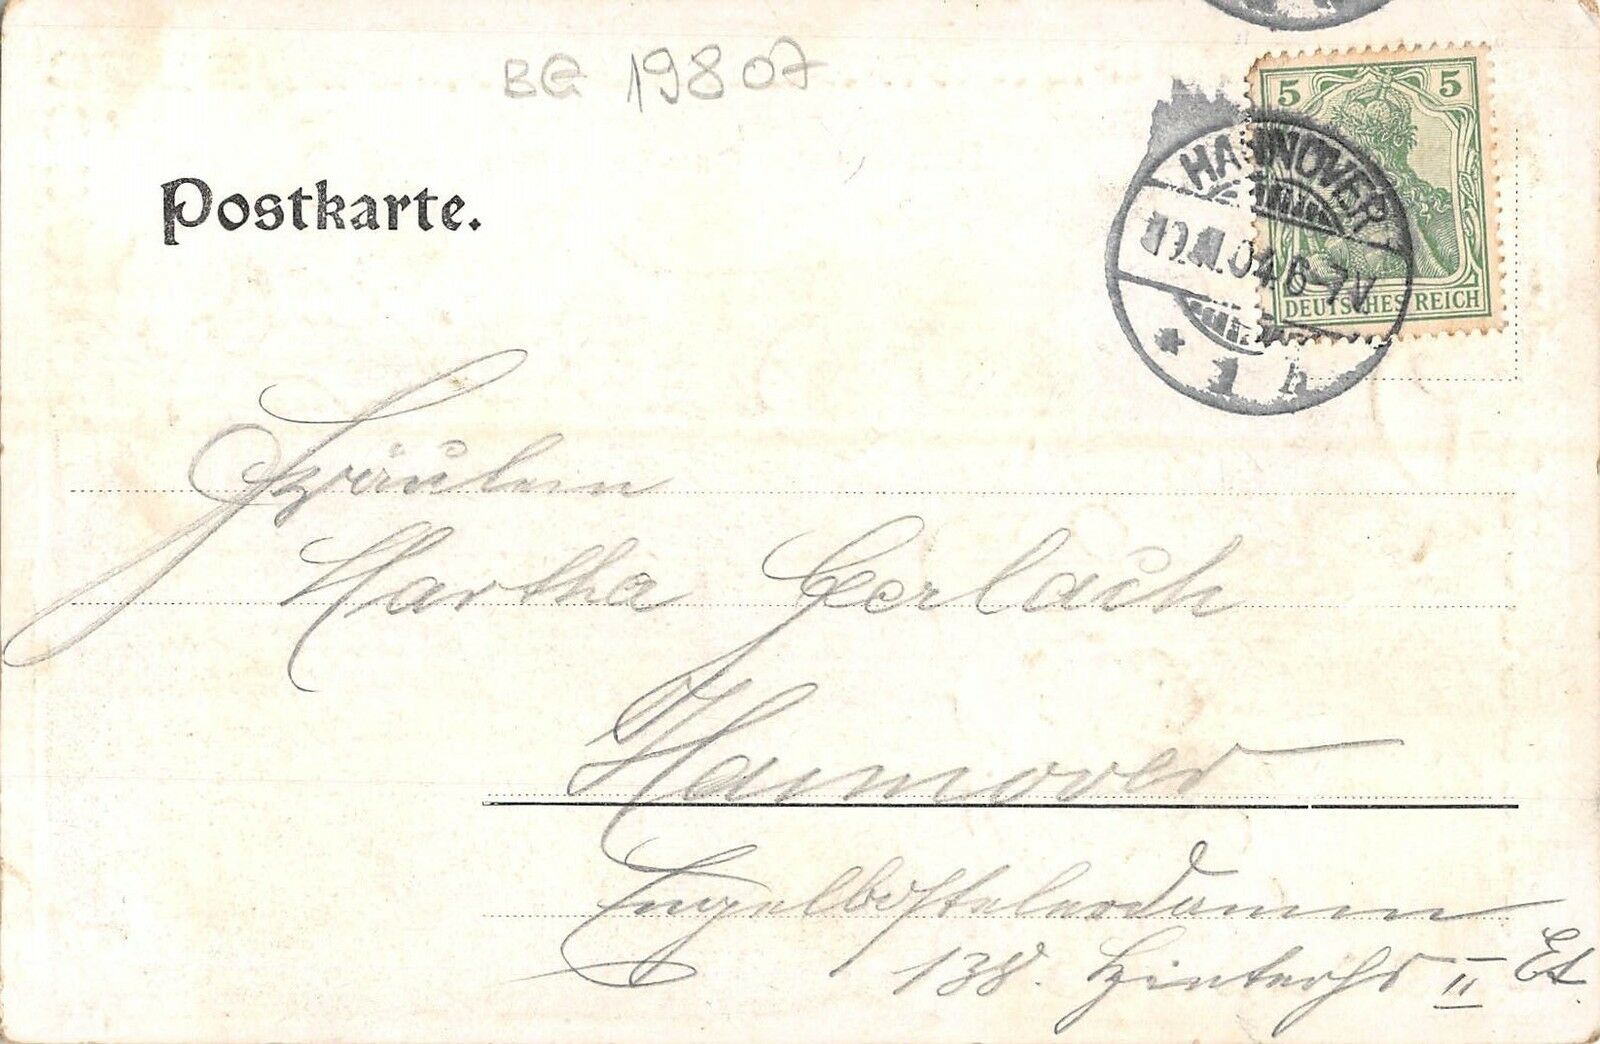 BG 19807
5 5
HANNOVER
04.6-7N
DEUTSCHES REICH
* 1 h
Postkarte.
Fräulein
Martha Gerlach
Hannover
Engelbostelerdamm
138. Hinterhs II Et.